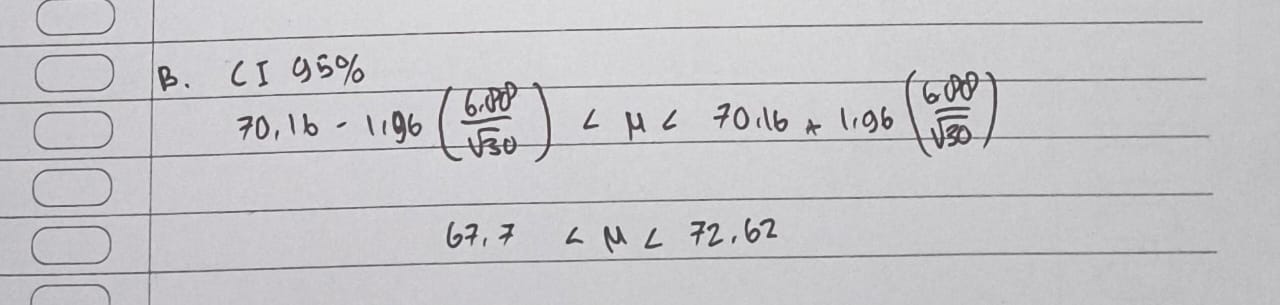 B. CI 95%
70,16 - 1,96 (6,88/√30) < μ < 70,16 + 1,96 (6,88/√30)
67,7 < μ < 72,62